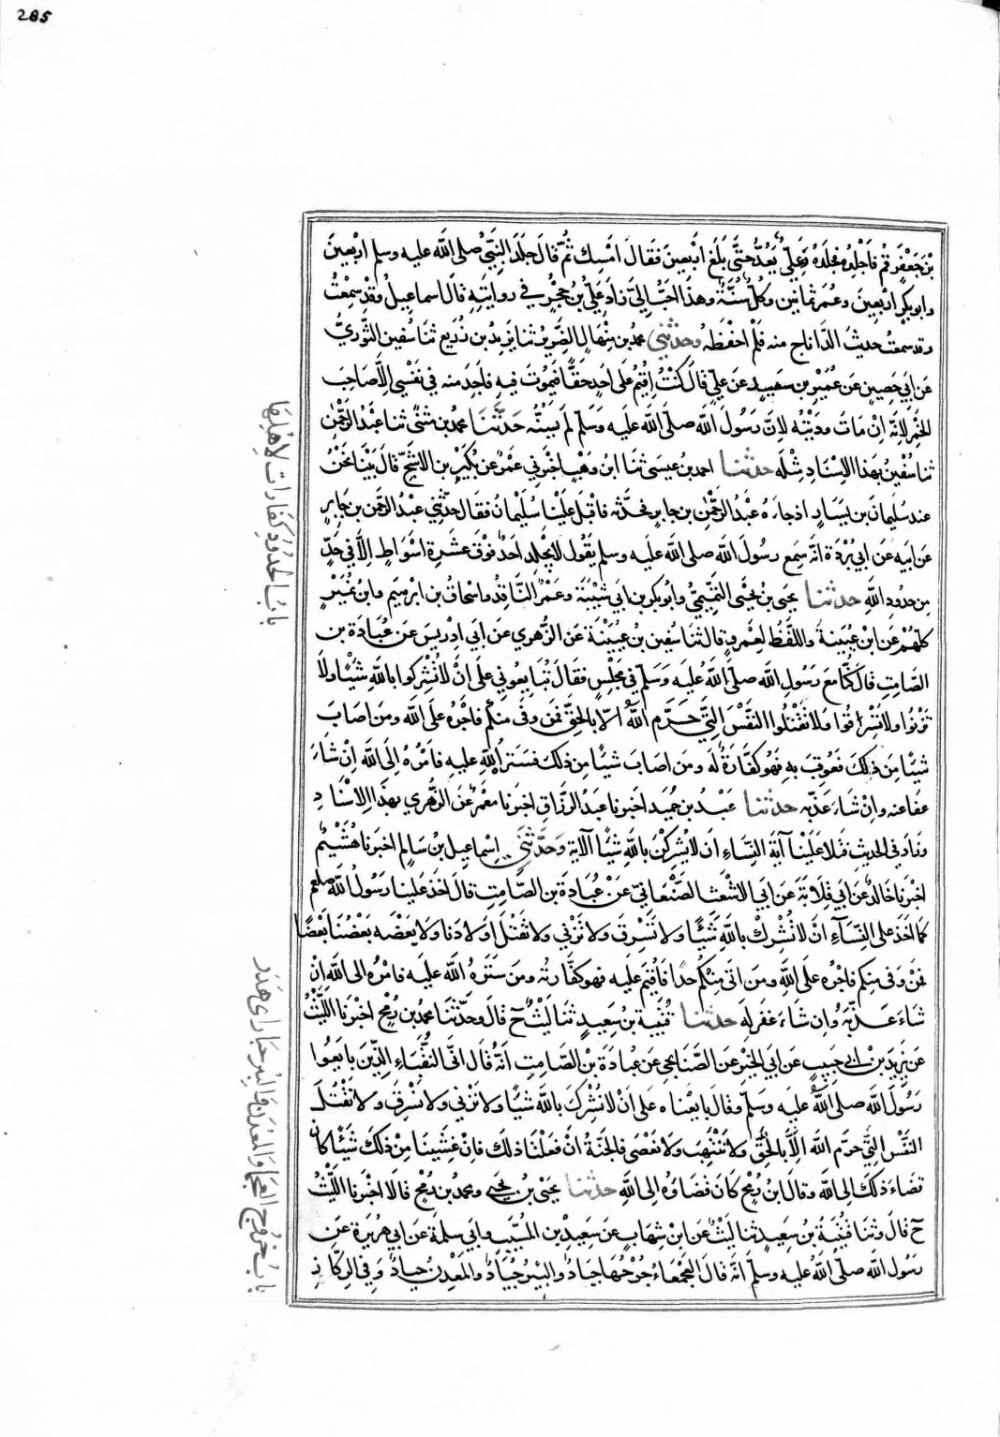 285
بْنَ جَعْفَرٍ قُمْ فَاجْلِدْهُ فجَلَدَهُ وَعَلِيٌّ يَعُدُّ حَتَّى بَلَغَ اَرْبَعِينَ فَقَالَ اَمْسِكْ ثُمَّ قَالَ جَلَدَ النَّبِيُّ صلى اللَّه عليه وسلم اربَعِينَ
وابوبكرٍ اربَعِينَ وعُمَرُ ثمانين وكُلٌّ سُنَّةٌ وهذا اَحَبُّ اِليَّ زاد عَلِيُّ بن حُجْرٍ في روايَتِهِ قال اسماعيلُ وقد سمِعْتُ
وقد سمعتُ حديثَ الدَّاناج منه فلم احْفَظْهُ وحدثني محمد بن مِنْهَالٍ الضَّرِيرُ ثنا يَزِيدُ بن زُرَيع ثنا سُفين الثَّوريُّ
عَن ابي حَصِينٍ عَن عُمَيْرِ بن سَعِيدٍ عَن عَلِيٍّ قالَ كُنْتُ اُقِيمُ عَلى اَحَدٍ حَدًّا فَيَمُوتَ فيهِ فاَجِدَ منه في نَفْسي اِلَّا صَاحِبَ
الخَمْرِ لِاَنَّه اِنْ مَاتَ وَدَيْتُه لِاَنَّ رَسُولَ اللَّه صَلى الله عَلَيه وَسَلَّم لَم يَسُنَّه حَدَّثَنَا محمد بن مثنّى ثنا عبْدُ الرَّحْمٰنِ
ثنا سُفْيٰنُ بهٰذا الاِسْنَادِ مِثْلَه حدثنا احمد بن عيسَى ثنا ابن وَهْبٍ اخبرني عَمْرٌو عَن بُكَيْرِ بن الاَشَجِّ قالَ بَيْنَا نَحْنُ
عند سُلَيمَانَ بن يَسَارٍ اذ جاءَهُ عَبْدُ الرَّحْمٰنِ بن جَابِرٍ فحَدَّثَه فاَقْبَلَ عَلَيْنا سُلَيْمَانُ فقَال حَدَّثَنِي عَبدُ الرَّحمٰنِ بن جَابِرٍ
عَن ابيه عَن ابي بُرْدَةَ انَّه سَمِعَ رسولَ الله صلى الله عليه وسلم يَقُولُ لا يُجْلَد اَحَدٌ فَوْقَ عَشَرَةِ اَسْوَاطٍ اِلَّا في حَدٍّ
مِن حدودِ اللَّهِ حدثنا يحيَى بن يَحْيَى التَّمِيمِيُّ وابوبكر بن ابي شَيْبَةَ وعَمْرٌو النَّاقِدُ واسْحَاقُ بن ابرٰهِيمَ وابنُ نُمَيْرٍ
كلّهُمْ عَن ابنِ عُيَينَةَ واللَّفْظُ لِعَمْرٍو قال ثنا سُفين بن عُيَيْنَةَ عَن الزُّهري عَن ابي اِدْرِيسَ عَن عُبَادَةَ بن
الصَّامِتِ قالَ كُنَّا معَ رَسُولِ اللَّه صلّى اللَّهُ عَلَيه وَسَلَّم في مَجْلِسٍ فقَالَ تُبَايِعُوني عَلَى اَنْ لا تُشْرِكوا بِاللَّهِ شَيْئًا ولا
تَزْنُوا ولا تَسْرِقُوا وَلا تَقْتُلوا النَّفْسَ الَّتي حَرَّم اللَّه اِلَّا بالحَقِّ فمَن وَفَى مِنكُم فاَجْرُه عَلَى اللَّه ومَن اصَابَ
شَيْئًا مِن ذٰلكَ فعُوقِبَ بِهِ فهُو كَفَّارَةٌ لَه ومَن اصَابَ شيئًا من ذلك فسَتَرهُ اللَّه عليه فاَمْرُه اِلَى اللَّه اِنْ شَاءَ
عفا عنه وانْ شاءَ عَذَّبه حدثنا عَبْدُ بن حُمَيدٍ اخبرنا عبدُ الرَّزَّاقِ اخبرنا معْمَرٌ عَن الزُّهري بهٰذا الاِسْنادِ
وزادَ في الحديث فتَلا عَلَيْنَا آيَةَ النِّساءِ اَن لا يُشرِكْنَ بِاللَّهِ شَيْئًا الآيَةَ وَحَدَّثَنِي اِسْماعيل بن سَالِمٍ اخبرنا هُشَيْمٌ
اخبرنا خَالِدٌ عَن ابي قِلَابَةَ عَن ابي الاَشْعَثِ الصَّنْعَانِيِّ عَنْ عُبَادَةَ بن الصَّامِتِ قالَ اَخَذَ عَلَينا رَسُولُ اللَّه صلعم
كمَا اَخَذَ على النِّسَآءِ اَنْ لا نُشْرِكَ بِاللَّهِ شَيْئًا ولا نَسْرِقَ ولا نَزْنِي ولا نَقْتُلَ اولادَنا ولا يَعْضَه بَعْضُنَا بَعْضًا
فمَن وَفى مِنكم فاَجْرُه عَلى اللَّهِ ومَن اَتَى مِنكُم حَدًّا فاُقِيمَ عليه فهوَ كفَّارتُه ومَن سَتَرَهُ اللَّه عَلَيه فاَمْرُه الى اللَّهِ اِنْ
شَاءَ عَذَّبَهُ وَاِن شَاءَ غفَر لَه حدثنا قُتَيبَة بن سَعِيدٍ ثنا لَيْثٌ ح قالَ وحَدَّثَنَا محمد بن رُمْحٍ اخْبَرنا اللَّيْثُ
عَن يَزِيدَ بنِ ابي حَبِيبٍ عَن ابي الخَيْرِ عَن الصُّنابِحِي عَن عُبادَةَ بْنِ الصَّامِتِ اَنّه قَالَ اِنّي النُّقَبَاءِ الَّذِينَ بايَعُوا
رَسُولَ اللَّه صلى اللَّهُ عليه وسَلَّم وقالَ بايَعْناه على اَنْ لا نُشْرِكَ باللَّه شَيْئًا ولا نَزْنِي ولا نَسْرِقَ وَلا نَقْتُلَ
النَّفْسَ الَّتِي حَرَّم اللَّه اِلَّا بالحَقِّ ولا نَنْتَهِبَ ولا نَعْصِي فالجَنَّةُ اِنْ فَعَلْنَا ذٰلكَ فاِنْ غَشِينَا مِنْ ذلكَ شَيْئًا كان
قضَاءُ ذلكَ اِلى اللَّه وقالَ ابنُ رُمْحٍ كَانَ قَضَاؤُه اِلى اللَّهِ حدثنا يحيى بن يحيى ومحمد بن رُمْحٍ قالا اخْبَرنا اللَّيْثُ
ح قالَ وثنا قُتَيْبَةُ بن سَعِيدٍ ثنا لَيْثٌ عَن ابْنِ شِهَابٍ عَن سَعِيدِ بن المُسَيَّبِ وابي سلمَةَ عَن ابي هُرَيرةَ عَن
رَسُولِ اللَّه صلَّى اللَّهُ عليه وسلَّم اَنَّه قالَ العَجْمَاءُ جُرْحُهَا جُبَارٌ والبِئْرُ جُبَارٌ والمَعْدِنُ جُبارٌ وَفي الرِّكَازِ
بابُ الحُدُودُ كفارات لاهلها
بابُ جُرُوح العجما والمعدن والبئر جبار اى هَدَر